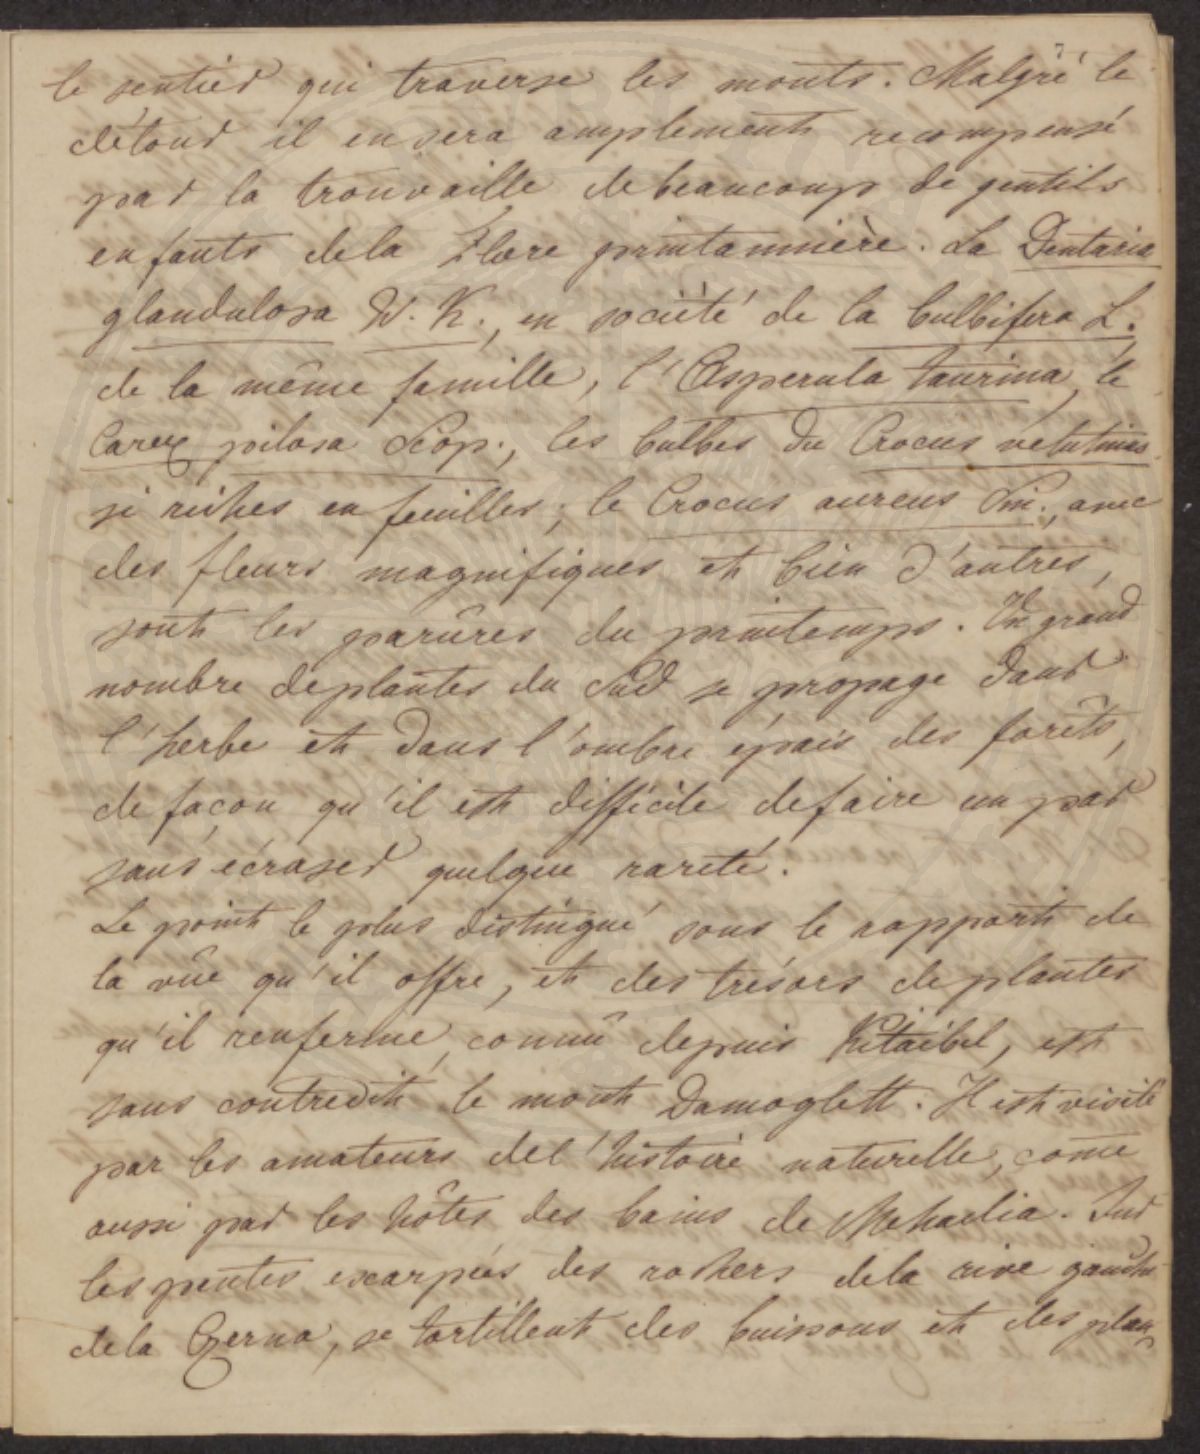 7
le sentier qui traverse les monts. Malgré le
détour il en sera amplement recompensé
par la trouvaille de beaucoup de gentils
enfants de la Flore printannière. La Dentaria
glandulosa W. K., en société de la bulbifera L.
de la même famille, l'Asperula taurina, le
Carex pilosa Scop., les bulbes du Crocus velutinus
si riches en feuilles; le Crocus aureus Sm., avec
des fleurs magnifiques et bien d'autres,
sont les parûres du printemps. Un grand
nombre de plantes du Sud se propage dans
l'herbe et dans l'ombre épais des forêts,
de façon qu'il est difficile de faire un pas
sans écraser quelque rareté.
Le point le plus distingué sous le rapport de
la vûe qu'il offre, et des trésors de plantes
qu'il renferme, connû depuis Kitaibel, est
sans contredit le mont Domoglett. Il est visité
par les amateurs de l'histoire naturelle, come
aussi par les hôtes des bains de Mehadia. Sur
les pentes escarpées des rochers de la rive gauche
de la Czerna, se tortillent des buissons et des plan